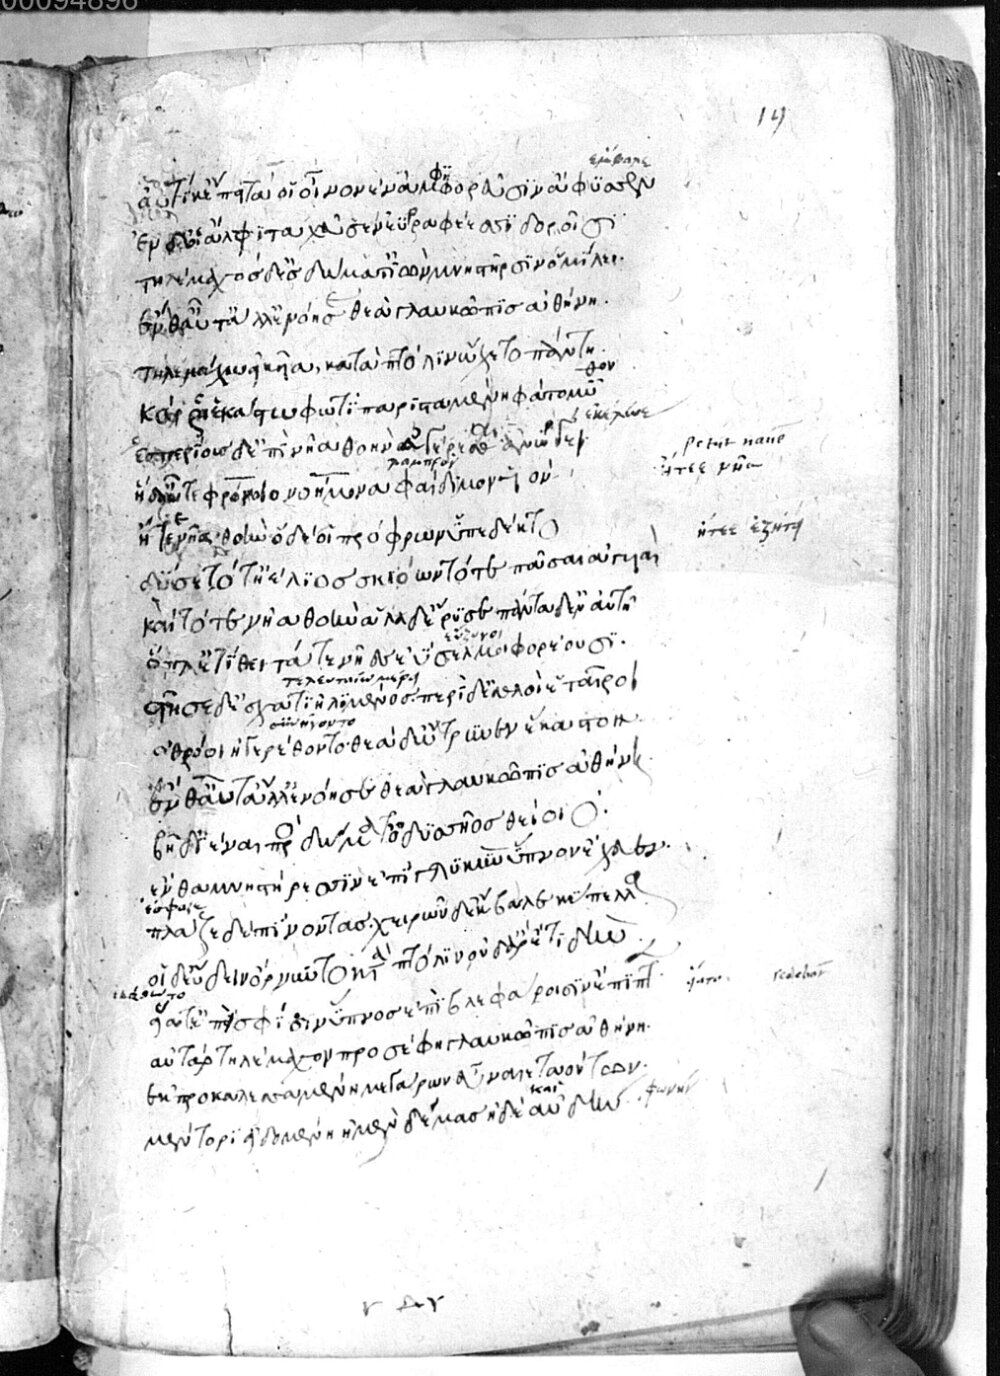 19
αὐτίκ' ἔπειτά οἱ οἶνον ἐν ἀμφιφορεῦσιν ἄφυσσεν
ἐν δέ οἱ ἄλφιτα χεῦεν ἐϋρραφέεσσι δοροῖσι
τηλέμαχος δ' ἐς δώματ' ἰὼν μνηστῆρσιν ὁμίλει.
ἔνθ' αὖτ' ἄλλ' ἐνόησε θεὰ γλαυκῶπις ἀθήνη.
τηλεμάχω εἰκυῖα, κατὰ πτόλιν ὤχετο πάντη.
καί ῥα ἑκάστω φωτὶ παρισταμένη φάτο μῦθον
ἑσπερίους δ' ἐπὶ νῆα θοὴν ἀγέρεσθαι ἀνώγει
λαμπρὸν
ἡ δ' αὖτε φρονίοιο νοήμονα φαίδιμον υἱὸν
petiit navem
ᾔτεε νῆα
ᾔτεε νῆα θοήν ὁ δέ οἱ πρόφρων ὑπέδεκτο
ᾔτεε ἐζήτει
δύσετό τ' ἠέλιος σκιόωντό τε πᾶσαι ἀγυιαὶ
καὶ τότε νῆα θοὴν ἅλαδ' εἴρυσε πάντα δ' ἐν αὐτῆ
ὅπλ' ἐτίθει τά τε νῆες ἐΰσελμοι φορέουσι.
στῆσε δ' ἐπ' ἐσχατιῆ λιμένος. περὶ δ' ἐσθλοὶ ἑταῖροι
ἀθρόοι ἠγερέθοντο. θεὰ δ' ὤτρυνεν ἕκαστον.
ἔνθ' αὖτ' ἄλλ' ἐνόησε θεὰ γλαυκῶπις ἀθήνη.
βῆ δ' ἰέναι πρὸς δώματ' ὀδυσσῆος θείοιο.
ἔνθα μνηστήρεσσιν ἐπὶ γλυκὺν ὕπνον ἔχευεν.
πλάζε δὲ πίνοντας. χειρῶν δ' ἔκβαλε κύπελλα
οἱ δ' εὕδειν ὄρνυντο κατὰ πτόλιν οὐδ' ἄρ' ἔτι δὴν
εἵατ' ἐπεί σφισιν ὕπνος ἐπὶ βλεφάροισιν ἔπιπτε
αὐτὰρ τηλέμαχον προσέφη γλαυκῶπις ἀθήνη.
ἐκπροκαλεσσαμένη μεγάρων εὖ ναιεταόντων.
μέντορι εἰδομένη ἠμὲν δέμας ἠδὲ καὶ αὐδὴν φωνήν